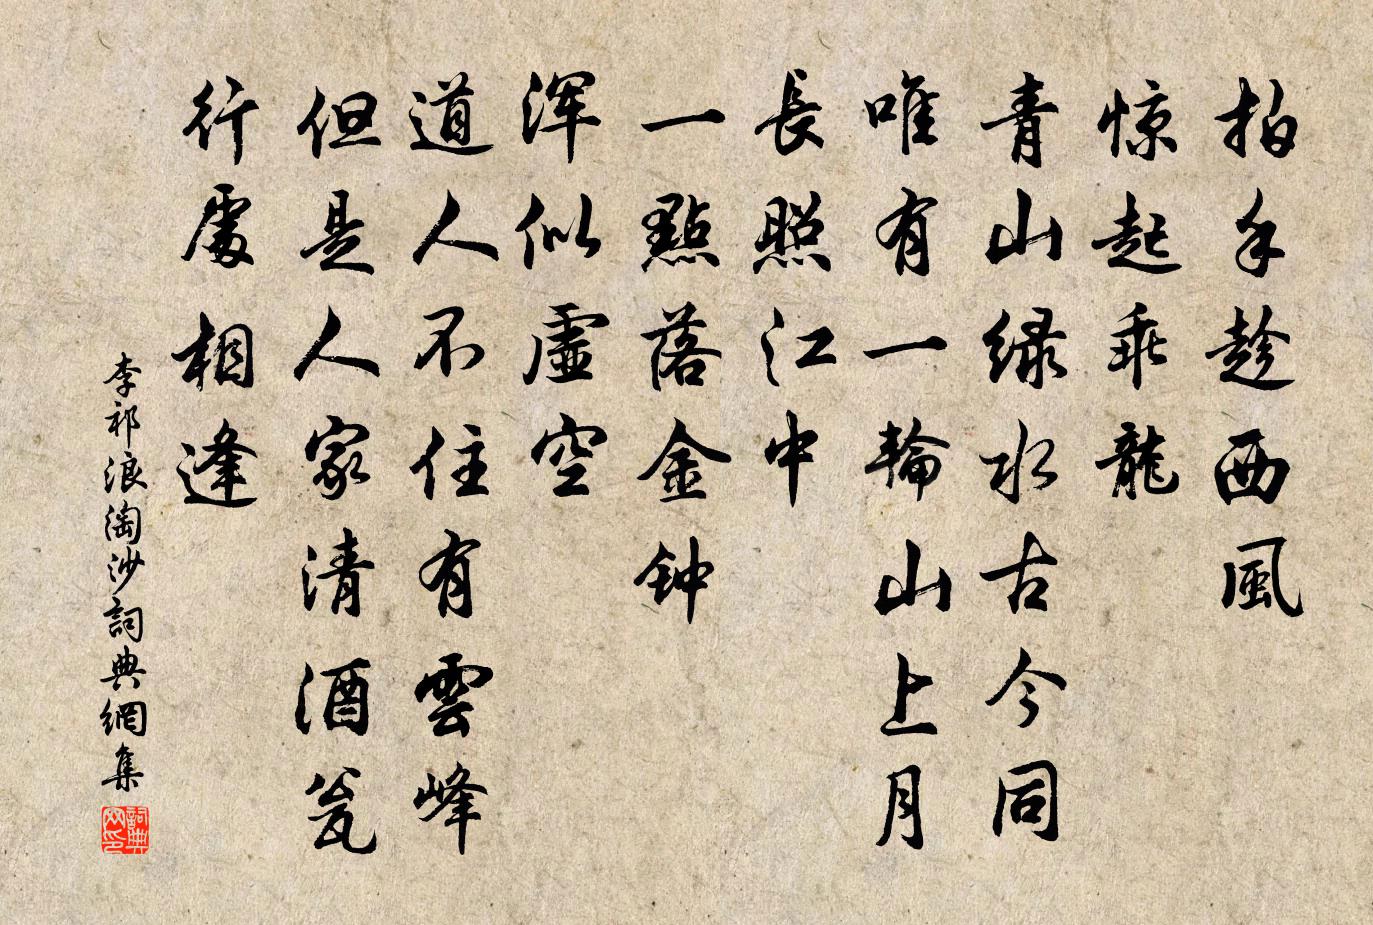 拍手趁西風
惊起乖龍
青山绿水古今同
唯有一輪山上月
長照江中
一點落金钟
浑似虛空
道人不住有雲峰
但是人家清酒瓮
行處相逢
李祁浪淘沙詞典網集
詞典
网印